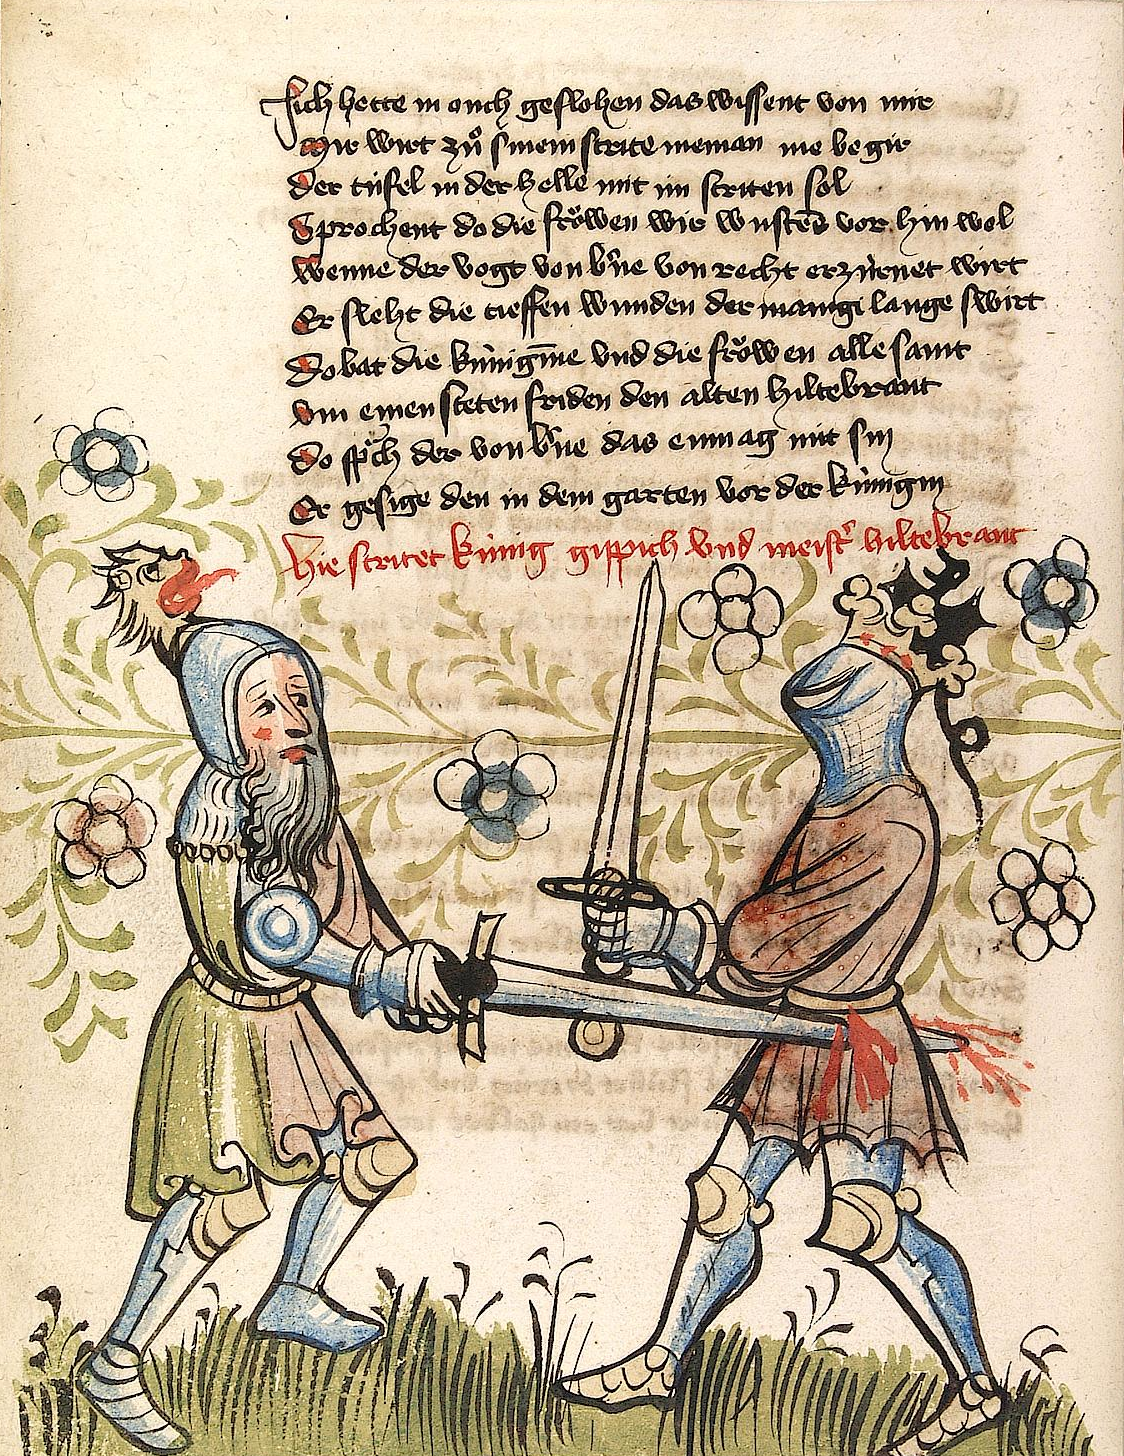 Ich hette in ouch geflohen das wissent von mir
Mir wirt zuͦ sinem strite nieman me begir
Der tüfel in der helle mit im striten sol
Sprochent do die froͧwen wir wustend vor hin wol
Wenne der vogt von bn̄e von recht erzürnet wirt
Er sleht die tieffen wunden der manigi lange swirt
Do bat die künigīne vnd die froͧwen alle samt
vm einen steten friden den alten hiltebrant
Do sp̄ch der von bn̄e das en mag nit sin
Er gesige den in dem garten vor der künigin
Hie stritet künig gippich vnd meist͛ hiltebrant